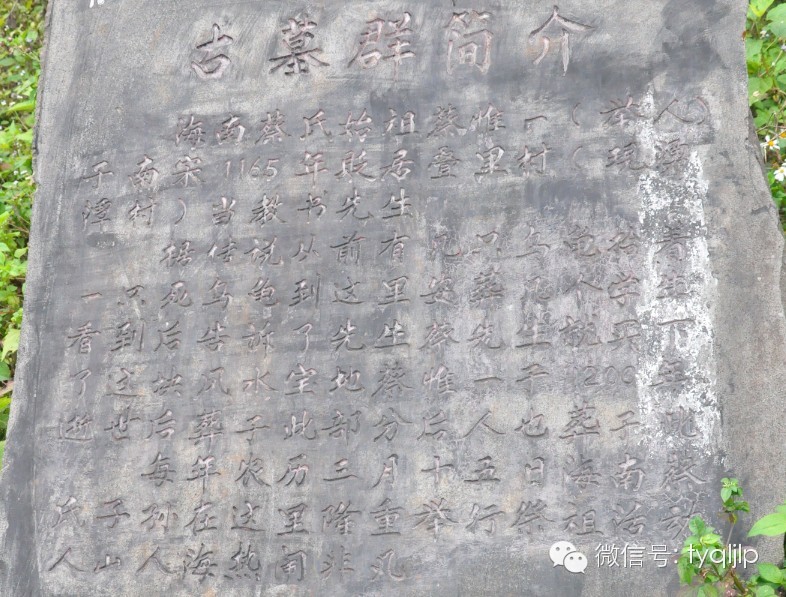 古墓群简介
海南蔡氏始祖蔡惟一(举人)
于南宋1165年贬居登里村(现潭
潭村)当教书先生
据传说从前有几只乌龟抬着
一只死乌龟到这里安葬几个学生
看到后告诉了先生蔡先生就买下
了这块风水宝地蔡惟一于1200年
逝世后葬于此部分后人也葬于此
每年农历三月十五日海南蔡
氏子孙在这里隆重举行祭祖活动
人山人海热闹非凡
微信号: tyqljlp